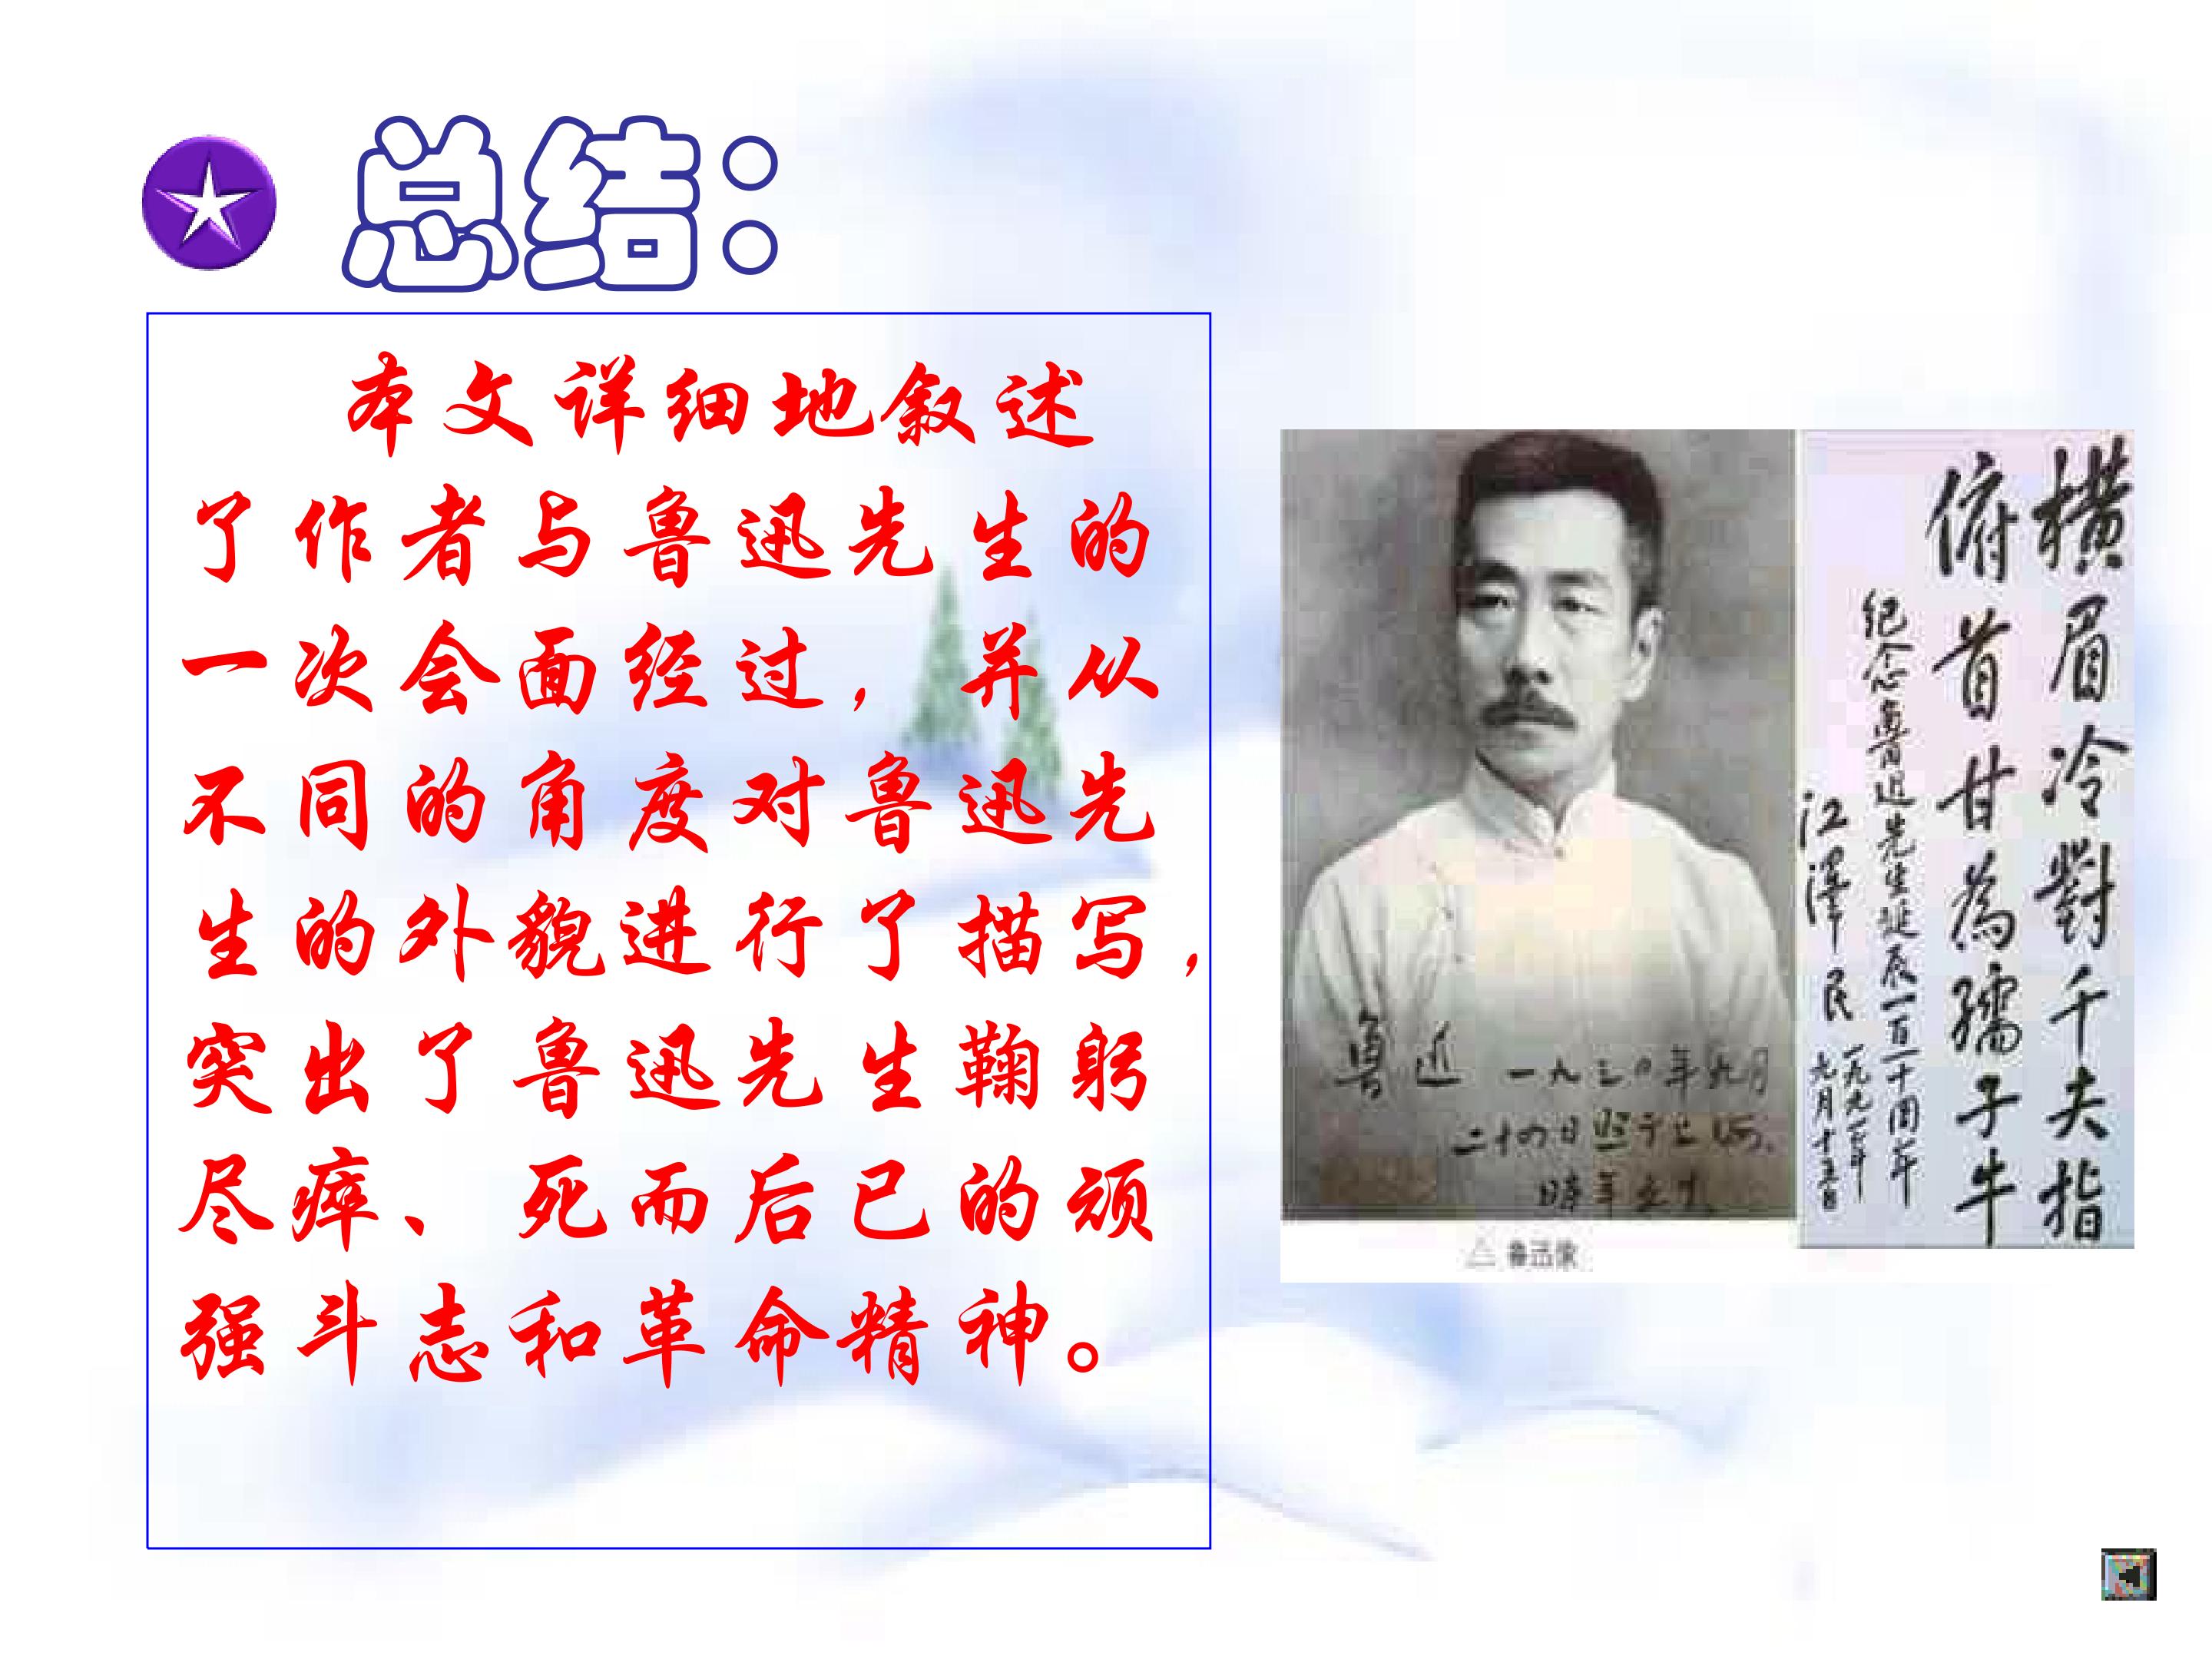 总结：
本文详细地叙述
了作者与鲁迅先生的
一次会面经过，并从
不同的角度对鲁迅先
生的外貌进行了描写，
突出了鲁迅先生鞠躬
尽瘁、死而后已的顽
强斗志和革命精神。
鲁迅 一九三〇年九月
二十四日照于上海，
時年五十
△ 鲁迅像
橫眉冷對千夫指
俯首甘為孺子牛
纪念鲁迅先生诞辰一百一十周年
江澤民
一九九一年
九月十五日